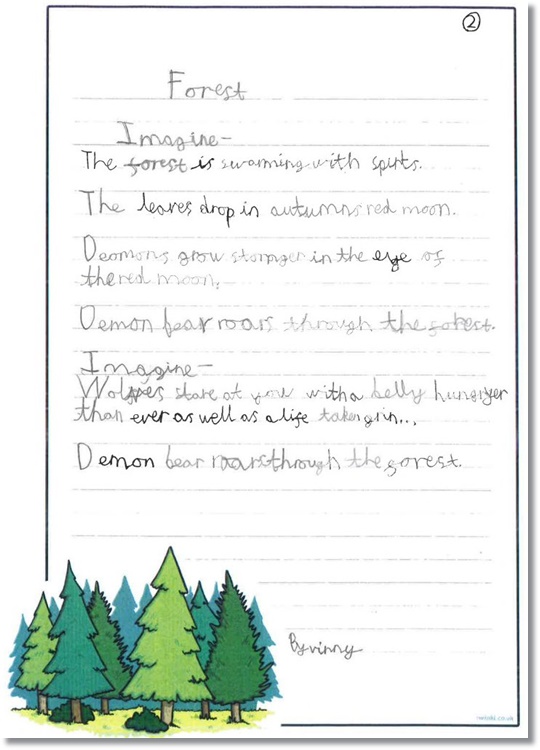 ②
Forest
Imagine-
The forest is swarming with spirts.
The leaves drop in autumns red moon.
Deomons grow stornger in the eye of
the red moon.
Demon fear roars through the forest.
Imagine-
Wolfves stare at you with a belly hungryer
than ever as well as a life taker grin...
Demon bear roars through the forest.
By vinny